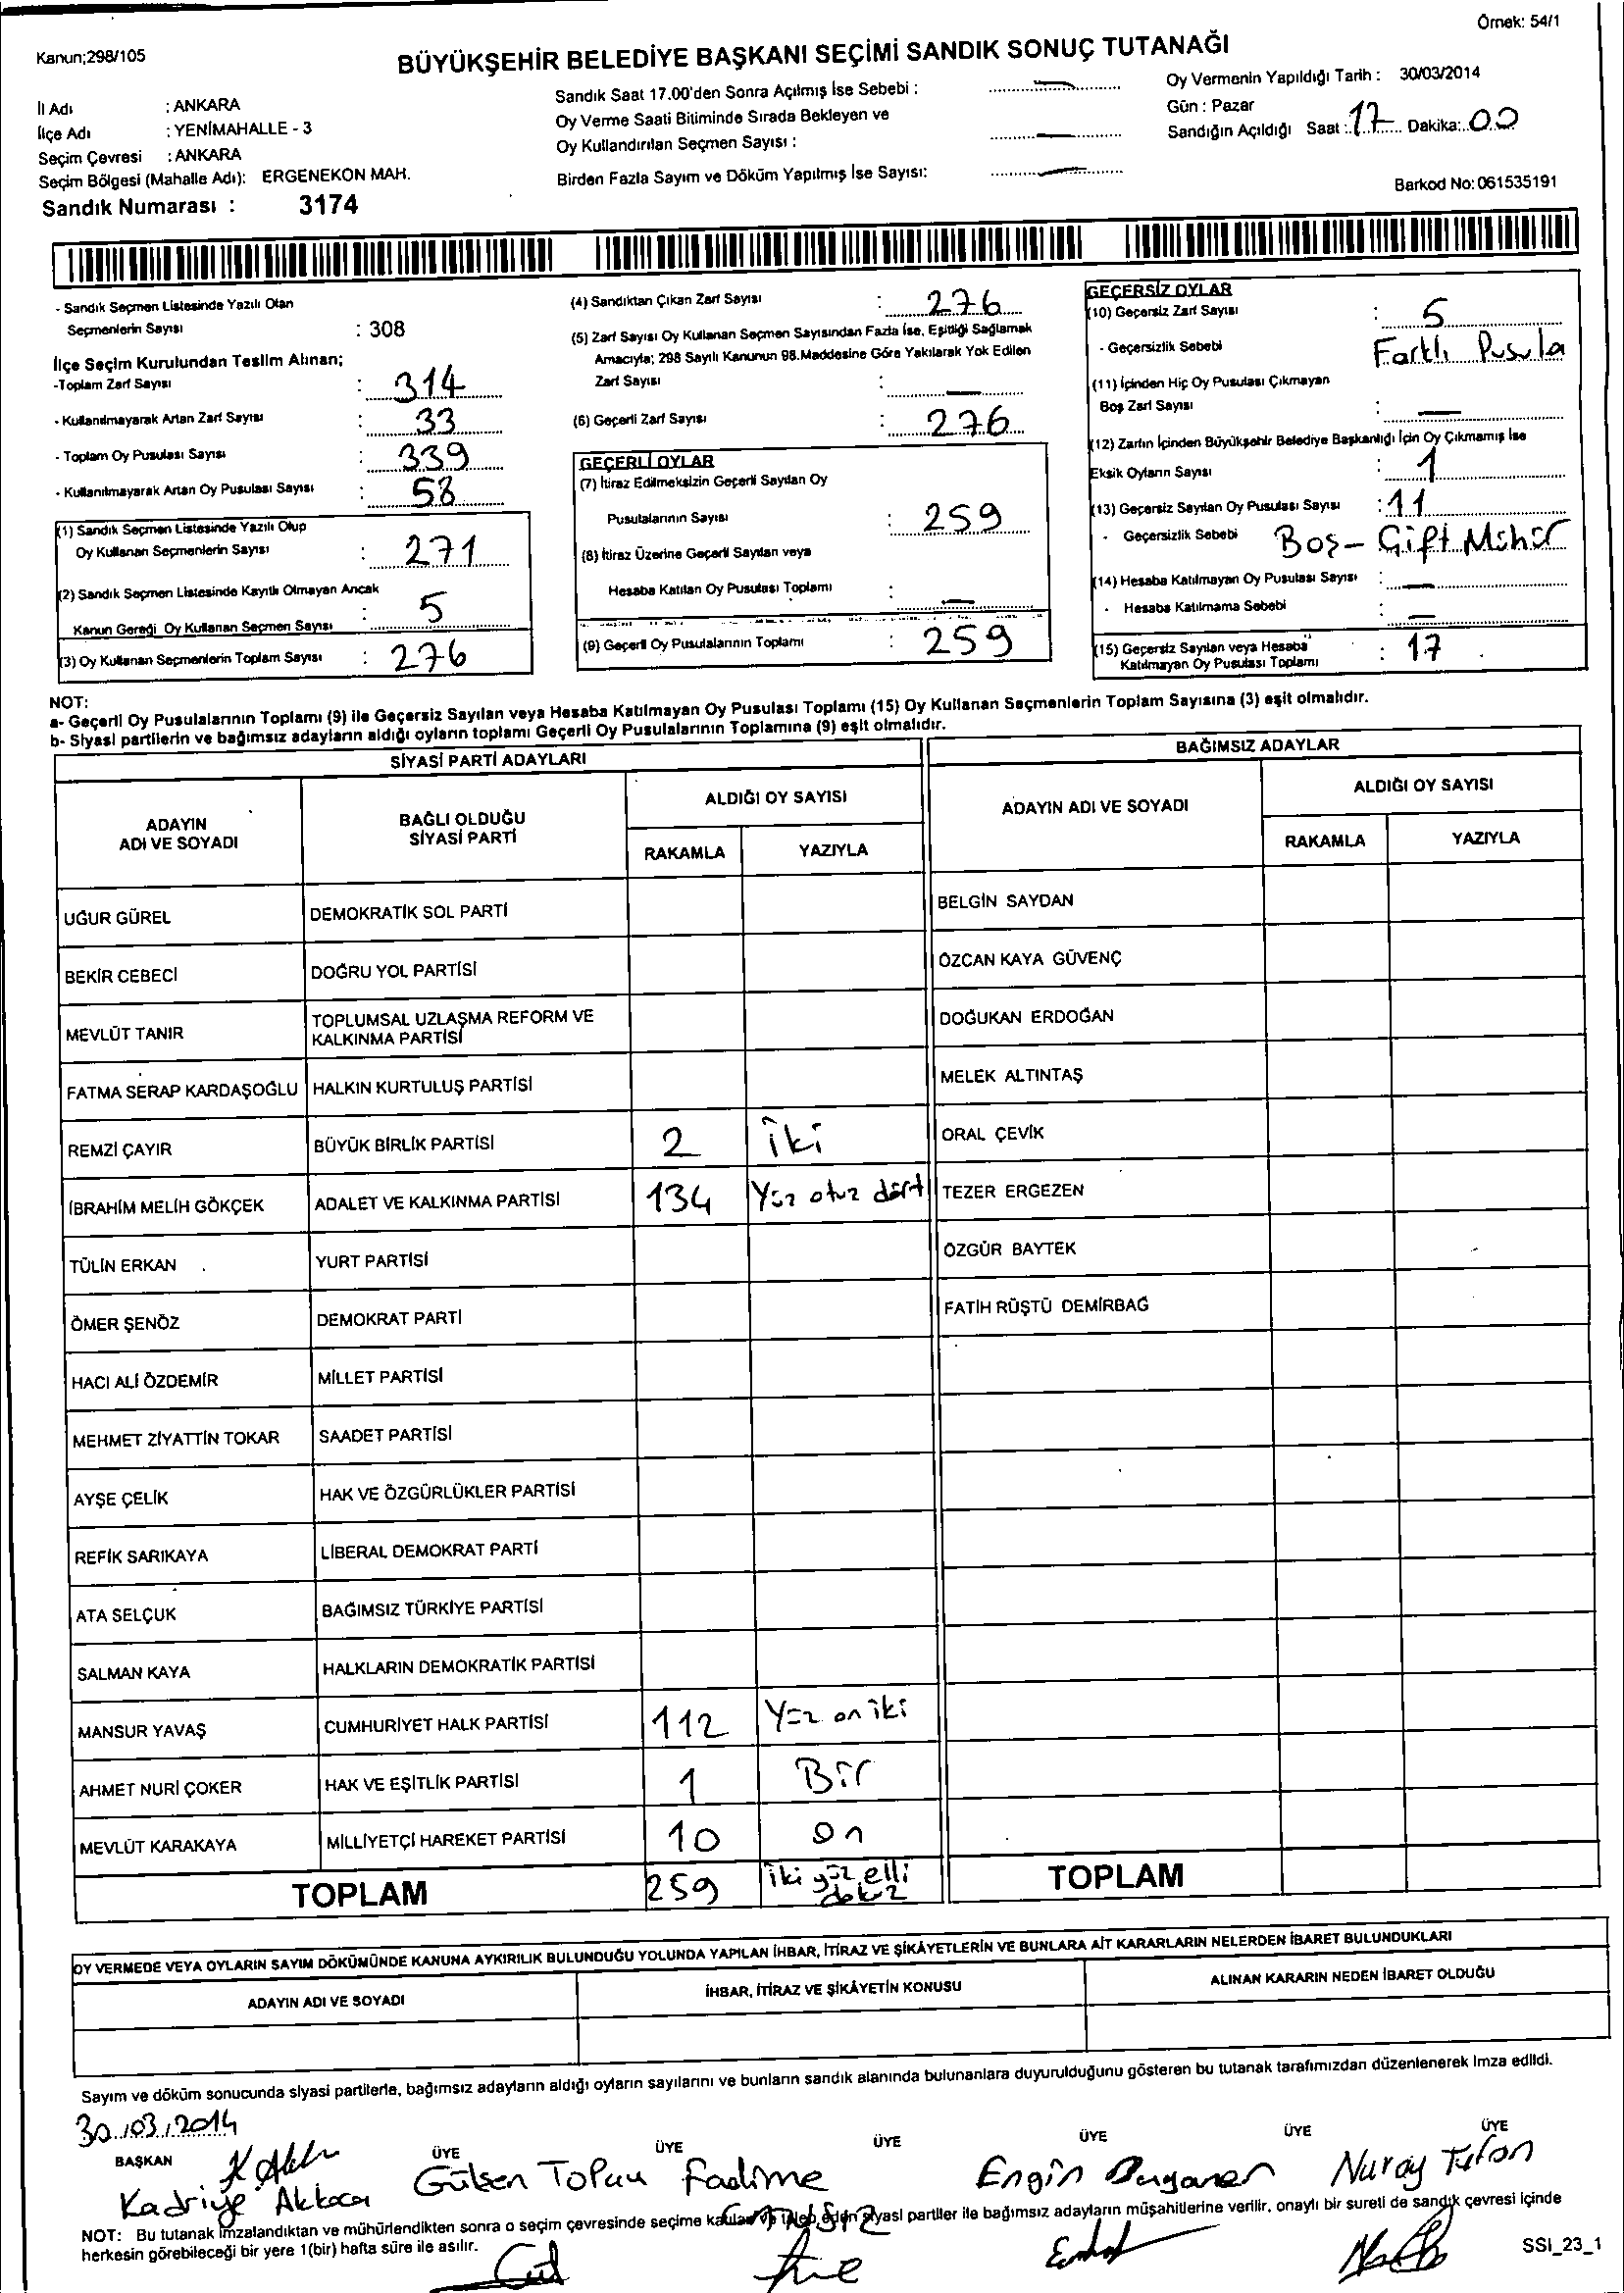 Örnek: 54/1
Kanun;298/105
BÜYÜKŞEHİR BELEDİYE BAŞKANI SEÇİMİ SANDIK SONUÇ TUTANAĞI
İl Adı : ANKARA
İlçe Adı : YENİMAHALLE - 3
Seçim Çevresi : ANKARA
Seçim Bölgesi (Mahalle Adı): ERGENEKON MAH.
Sandık Numarası : 3174
Sandık Saat 17.00'den Sonra Açılmış İse Sebebi :
Oy Verme Saati Bitiminde Sırada Bekleyen ve
Oy Kullandırılan Seçmen Sayısı :
Birden Fazla Sayım ve Döküm Yapılmış İse Sayısı:
Oy Vermenin Yapıldığı Tarih : 30/03/2014
Gün : Pazar
Sandığın Açıldığı Saat : 17 Dakika: 00
Barkod No: 061535191
- Sandık Seçmen Listesinde Yazılı Olan
Seçmenlerin Sayısı : 308
İlçe Seçim Kurulundan Teslim Alınan;
-Toplam Zarf Sayısı : 314
- Kullanılmayarak Artan Zarf Sayısı : 33
- Toplam Oy Pusulası Sayısı : 339
- Kullanılmayarak Artan Oy Pusulası Sayısı : 58
(1) Sandık Seçmen Listesinde Yazılı Olup
Oy Kullanan Seçmenlerin Sayısı : 271
(2) Sandık Seçmen Listesinde Kayıtlı Olmayan Ancak
Kanun Gereği Oy Kullanan Seçmen Sayısı : 5
(3) Oy Kullanan Seçmenlerin Toplam Sayısı : 276
(4) Sandıktan Çıkan Zarf Sayısı : 276
(5) Zarf Sayısı Oy Kullanan Seçmen Sayısından Fazla İse, Eşitliği Sağlamak
Amacıyla; 298 Sayılı Kanunun 98.Maddesine Göre Yakılarak Yok Edilen
Zarf Sayısı : —
(6) Geçerli Zarf Sayısı : 276
GEÇERLİ OYLAR
(7) İtiraz Edilmeksizin Geçerli Sayılan Oy
Pusulalarının Sayısı : 259
(8) İtiraz Üzerine Geçerli Sayılan veya
Hesaba Katılan Oy Pusulası Toplamı : —
(9) Geçerli Oy Pusulalarının Toplamı : 259
GEÇERSİZ OYLAR
(10) Geçersiz Zarf Sayısı : 5
- Geçersizlik Sebebi Farklı Pusula
(11) İçinden Hiç Oy Pusulası Çıkmayan
Boş Zarf Sayısı : —
(12) Zarfın İçinden Büyükşehir Belediye Başkanlığı İçin Oy Çıkmamış İse
Eksik Oyların Sayısı : 1
(13) Geçersiz Sayılan Oy Pusulası Sayısı : 11
- Geçersizlik Sebebi Boş - Çift Mühür
(14) Hesaba Katılmayan Oy Pusulası Sayısı : —
- Hesaba Katılmama Sebebi : —
(15) Geçersiz Sayılan veya Hesaba
Katılmayan Oy Pusulası Toplamı : 17
NOT:
a- Geçerli Oy Pusulalarının Toplamı (9) ile Geçersiz Sayılan veya Hesaba Katılmayan Oy Pusulası Toplamı (15) Oy Kullanan Seçmenlerin Toplam Sayısına (3) eşit olmalıdır.
b- Siyasi partilerin ve bağımsız adayların aldığı oyların toplamı Geçerli Oy Pusulalarının Toplamına (9) eşit olmalıdır.
SİYASİ PARTİ ADAYLARI
BAĞIMSIZ ADAYLAR
ADAYIN
ADI VE SOYADI
BAĞLI OLDUĞU
SİYASİ PARTİ
ALDIĞI OY SAYISI
RAKAMLA YAZIYLA
ADAYIN ADI VE SOYADI
ALDIĞI OY SAYISI
RAKAMLA YAZIYLA
UĞUR GÜREL DEMOKRATİK SOL PARTİ BELGİN SAYDAN
BEKİR CEBECİ DOĞRU YOL PARTİSİ ÖZCAN KAYA GÜVENÇ
MEVLÜT TANIR TOPLUMSAL UZLAŞMA REFORM VE
KALKINMA PARTİSİ DOĞUKAN ERDOĞAN
FATMA SERAP KARDAŞOĞLU HALKIN KURTULUŞ PARTİSİ MELEK ALTINTAŞ
REMZİ ÇAYIR BÜYÜK BİRLİK PARTİSİ 2 iki ORAL ÇEVİK
İBRAHİM MELİH GÖKÇEK ADALET VE KALKINMA PARTİSİ 134 Yüz otuz dört TEZER ERGEZEN
TÜLİN ERKAN YURT PARTİSİ ÖZGÜR BAYTEK
ÖMER ŞENÖZ DEMOKRAT PARTİ FATİH RÜŞTÜ DEMİRBAĞ
HACI ALİ ÖZDEMİR MİLLET PARTİSİ
MEHMET ZİYATTİN TOKAR SAADET PARTİSİ
AYŞE ÇELİK HAK VE ÖZGÜRLÜKLER PARTİSİ
REFİK SARIKAYA LİBERAL DEMOKRAT PARTİ
ATA SELÇUK BAĞIMSIZ TÜRKİYE PARTİSİ
SALMAN KAYA HALKLARIN DEMOKRATİK PARTİSİ
MANSUR YAVAŞ CUMHURİYET HALK PARTİSİ 112 Yüz on iki
AHMET NURİ ÇOKER HAK VE EŞİTLİK PARTİSİ 1 Bir
MEVLÜT KARAKAYA MİLLİYETÇİ HAREKET PARTİSİ 10 On
TOPLAM 259 iki yüz elli
dokuz
TOPLAM
OY VERMEDE VEYA OYLARIN SAYIM DÖKÜMÜNDE KANUNA AYKIRILIK BULUNDUĞU YOLUNDA YAPILAN İHBAR, İTİRAZ VE ŞİKÂYETLERİN VE BUNLARA AİT KARARLARIN NELERDEN İBARET BULUNDUKLARI
ADAYIN ADI VE SOYADI İHBAR, İTİRAZ VE ŞİKÂYETİN KONUSU ALINAN KARARIN NEDEN İBARET OLDUĞU
Sayım ve döküm sonucunda siyasi partilerle, bağımsız adayların aldığı oyların sayılarını ve bunların sandık alanında bulunanlara duyurulduğunu gösteren bu tutanak tarafımızdan düzenlenerek imza edildi.
30/03/2014
BAŞKAN ÜYE ÜYE ÜYE ÜYE ÜYE ÜYE
Kadriye Akkoca Gülsen Fadime Engin Nuray
NOT: Bu tutanak imzalandıktan ve mühürlendikten sonra o seçim çevresinde seçime katılan ve talep eden siyasi partiler ile bağımsız adayların müşahitlerine verilir, onaylı bir sureti de sandık çevresi içinde
herkesin görebileceği bir yere 1(bir) hafta süre ile asılır.
SSI_23_1